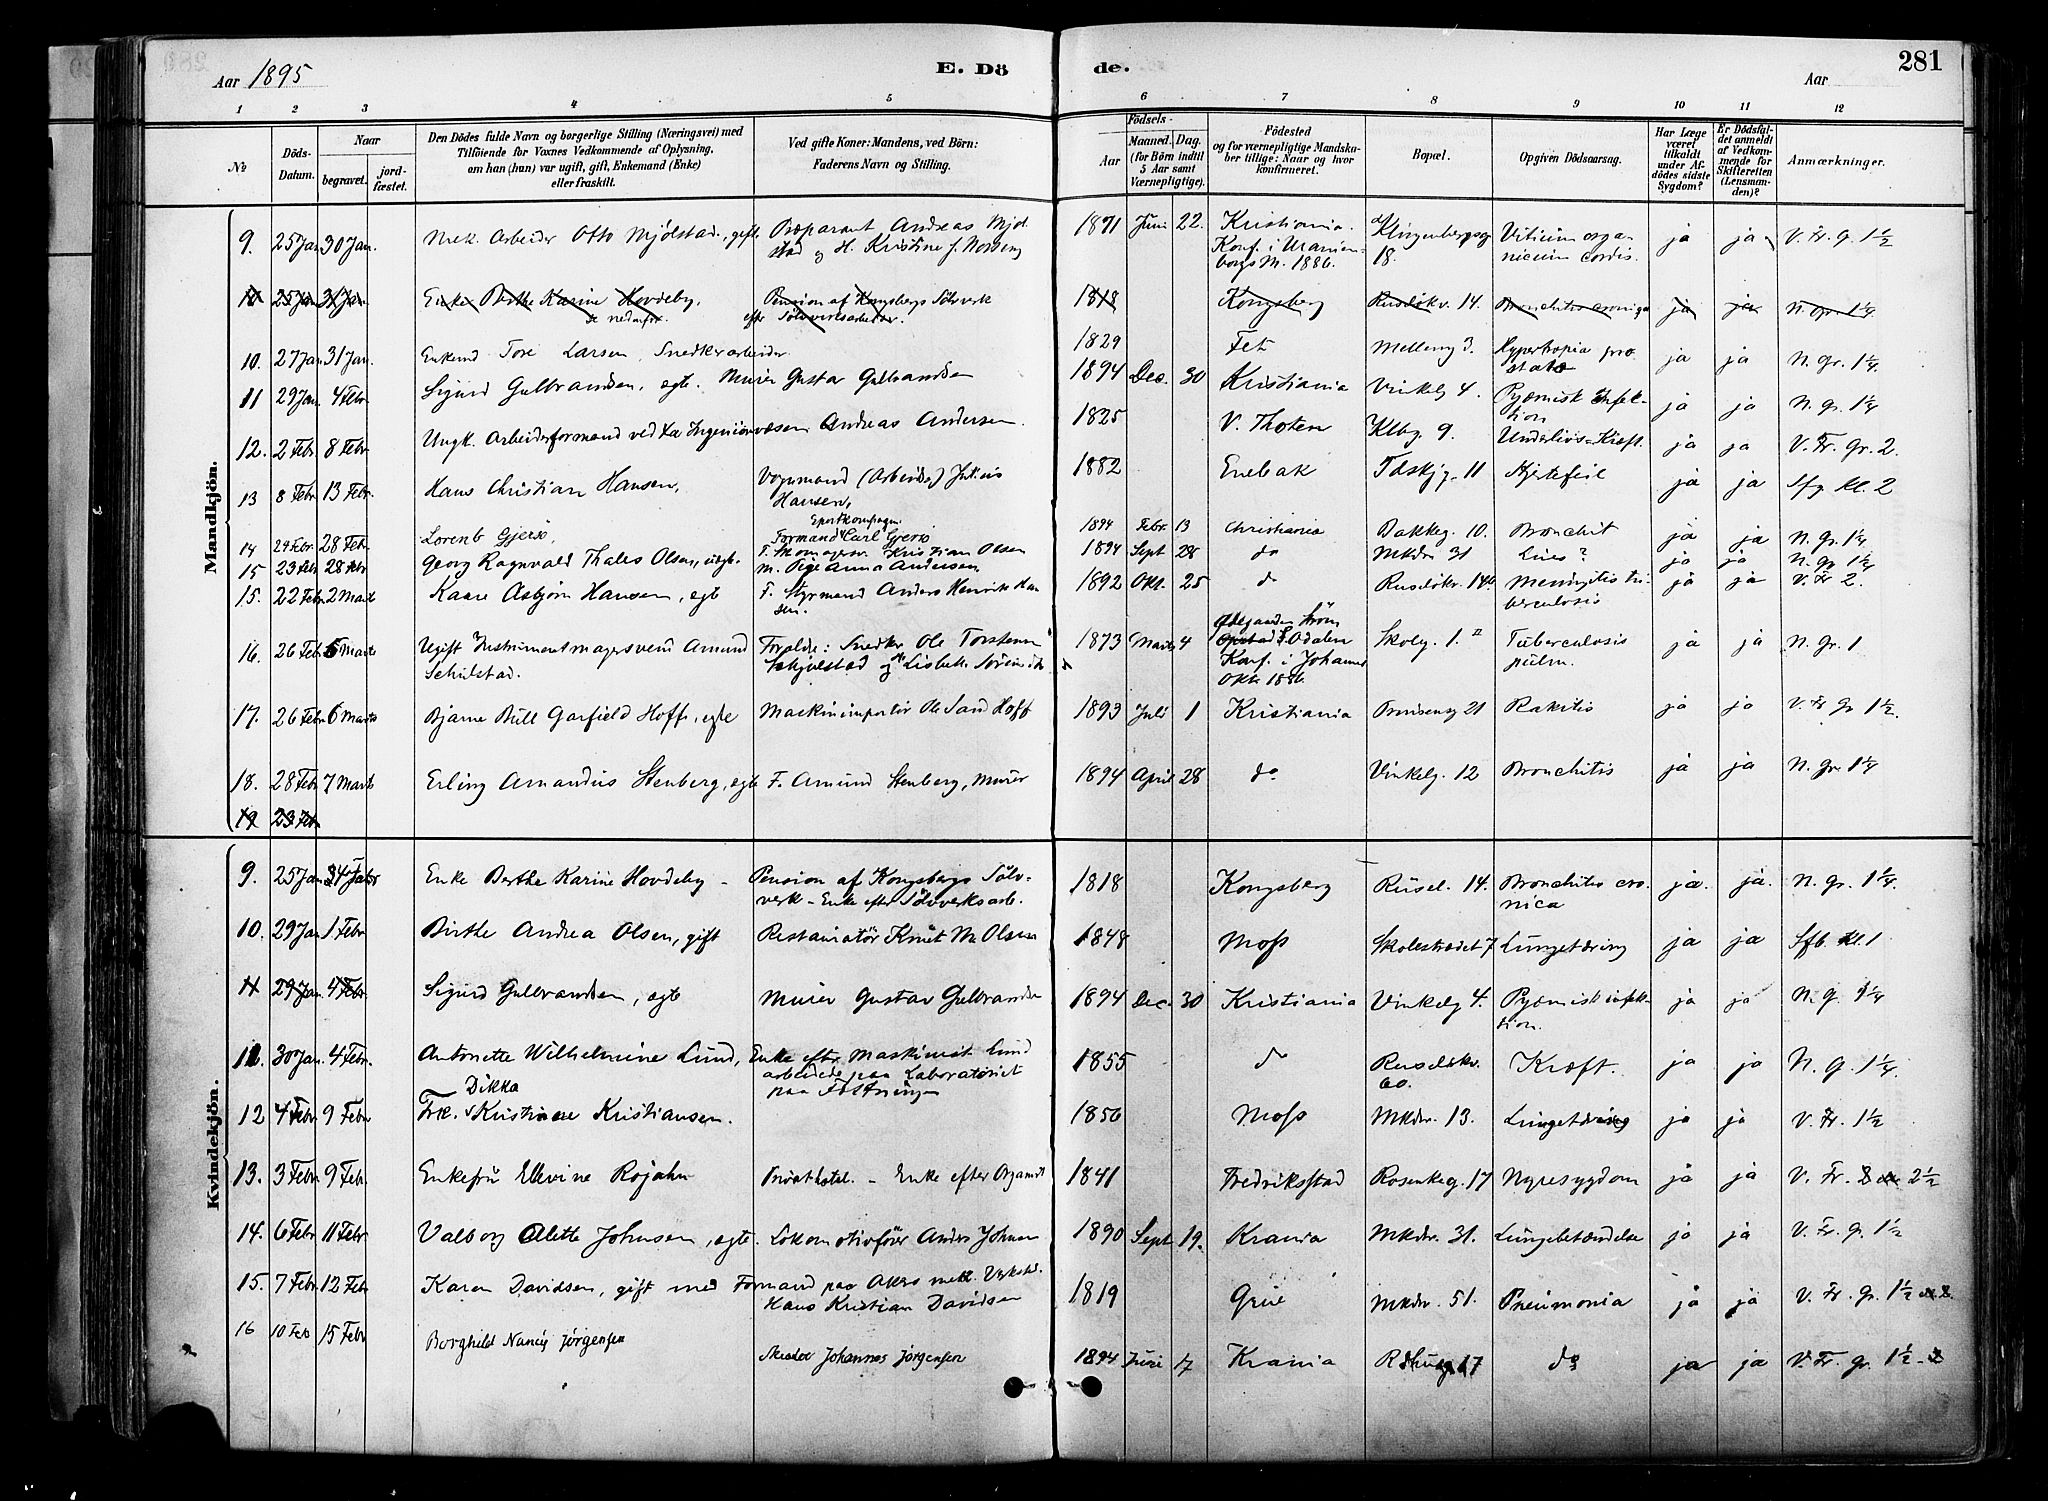 281
Aar 1895
E. Dö
de.
Aar
1 2 3 4 5 6 7 8 9 10 11 12
No
Döds-Datum.
Naar
begravet.
jord-fæstet.
Den Dödes fulde Navn og borgerlige Stilling (Næringsvei) med
Tilföiende for Voxnes Vedkommende af Oplysning,
om han (hun) var ugift, gift, Enkemand (Enke)
eller fraskilt.
Ved gifte Koner: Mandens, ved Börn:
Faderens Navn og Stilling.
Födsels-
Aar
Maaned. Dag.
(for Börn indtil
5 Aar samt
Værnepligtige).
Födested
og for værnepligtige Mandska-
ber tillige: Naar og hvor
konfirmeret.
Bopæl.
Opgiven Dödsaarsag.
Har Læge
været
tilkaldt
under Af-
dödes sidste
Sygdom?
Er Dödsfal-
det anmeldt
af Vedkom-
mende for
Skifteretten
(Lensman-
den)?
Anmærkninger.
Mandkjön.
9. 25 Jan 30 Jan. Mek. Arbeider Otto Mjölstad, gift. Præparant Andreas Mjöl
stad og H. Kristine f. 1871 Juni 22. Kristiania.
Konf. i Uranien-
borgs M. 1886. Klingenbergsg
18. Vitium orga-
nicum cordis. ja ja V. Fr. g. 1½
10 25 Jan 31 Jan. Enke Berthe Karine Hovdeby. Pension af Kongsbergs Sölvverk
se nedenfor. efter Sölvverksarbeider. 1818 Kongsberg Ruselökv. 14. Bronchitis cronica ja ja N. gr. 1¼
10. 27 Jan 31 Jan. Enkemd Tore Larsen, Snedkerarbeider 1829 Fet Mellemg 3. Hypertropia pro
statæ ja ja N. gr. 1¼
11 29 Jan 4 Febr. Sigurd Gulbrandsen, egte. Murer Gustav Gulbrandsen 1894 Dec. 30 Kristiania Vinkelg 4. Pyæmisk Infek-
tion ja ja N. gr. 1¼
12. 2 Febr 8 Febr Ungk. Arbeiderformand ved Ingeniörvæsen Andreas Andersen. 1825 V. Thoten Klbg. 9. Underlivs-Kræft. ja ja V. Fr. Gr. 2.
13 8 Febr 13 Febr. Hans Christian Hansen, Vognmand (Arbeider) Julius
Hansen, 1882 Enebak Tdskjg. 11 Hjertefeil ja ja Sfg Kl. 2
14 24 Febr. 28 Febr. Lorentz Gjersö, Formand Carl Gjersö 1894 Febr. 13 Christiania Bakkeg. 10. Bronchit ja ja N. gr. 1¼
15 23 Febr 28 Febr Georg Ragnvald Thales Olsen, uegte. F. Skomagersv. Kristian Olsen
M. Pige Anna Andersen. 1894 Sept 28 do Mkdv 31 Lues? ja ja N. gr 1¼
15. 22 Febr 2 Marts Kaare Asbjörn Hansen, egte F. Styrmand Anders Henrik Han
sen. 1892 Okt. 25 do Ruselökv. 14b Meningitis tu
berculosis ja ja V. Fr 2.
16. 26 Febr 5 Marts Ugift Instrumentmagersvend Amund
Schulstad. Forældre: Snedker Ole Torstensen
Schjulstad og Lisbeth 1873 Marts 4 Odalen
Konf. i Johannes
Okt. 1886. Skolg. 1. II Tuberculosis
pulm. ja ja N. gr. 1
17. 26 Febr 6 Marts Bjarne Bull Garfield Hoff, egte Maskinimportör Ole Sand Hoff 1893 Juli 1 Kristiania Munkedamsv 21 Rakitis ja ja V. Fr Gr 1½.
18. 28 Febr 7 Marts Erling Amandus Stenberg, egte F. Amund Stenberg, Murer 1894 April 28 do Vinkelg. 12 Bronchitis ja ja N. gr. 1¼
19 23 Feb
Kvindekjön.
9. 25 Jan Enke Berthe Karine Hovdeby - Pension af Kongsbergs Sölv-
verk - Enke efter Sölvverksarb. 1818 Kongsberg Rüsel. 14. Bronchitis cro-
nica ja. ja. N. gr. 1¼.
10. 29 Jan 1 Febr Birthe Andrea Olsen, gift Restauratör Knut M. Olsen 1848 Moss Skolestrædet 7 Lungetæring ja ja Sfb. Kl. 1
11 29 Jan 4 Febr Sigurd Gulbrandsen, egte Murer Gustav Gulbrandsen 1894 Dec. 30 Kristiania Vinkelg 4. Pyæmisk infek-
tion. ja ja N. g. 1¼
11. 30 Jan. 4 Febr. Antonette Wilhelmine Lund, Enke efter Maskinist Lund
arbeidede paa Laboratoriet
paa Fæstningen 1855 do Ruselökv.
60. Kræft. ja ja N. g. 1¼.
12 4 Febr 9 Febr Frk. Dikka Kristine Kristiansen. 1850 Moss Mkdv. 13. Lungetæring ja ja V. Fr. 1½
13. 3 Febr 9 Febr. Enkefru Ellevine Rojahn Privathotel. - Enke efter Organist 1841 Fredriksstad Rosenkg. 17 Nyresygdom ja ja V. Fr. 2 2½
14. 6 Febr 11 Febr. Valborg Alette Johnsen, egte. Lokomotivförer Anders Johnsen 1890 Sept 19. Krania Mkdv. 31. Lungebetændelse ja ja V. Fr. G. 1½
15. 7 Febr 12 Febr Karen Davidsen, gift med Formand paa Akers mek. Verksted.
Hans Kristian Davidsen 1819 Grue Mkdv. 51. Pneumonia ja ja V. Fr. Gr. 1½
16 10 Feb 15 Febr Borghild Nancy Jörgensen Johannes Jörgensen 1894 Juni 7 Krania 17 do ja ja V. Fr. gr. 1½